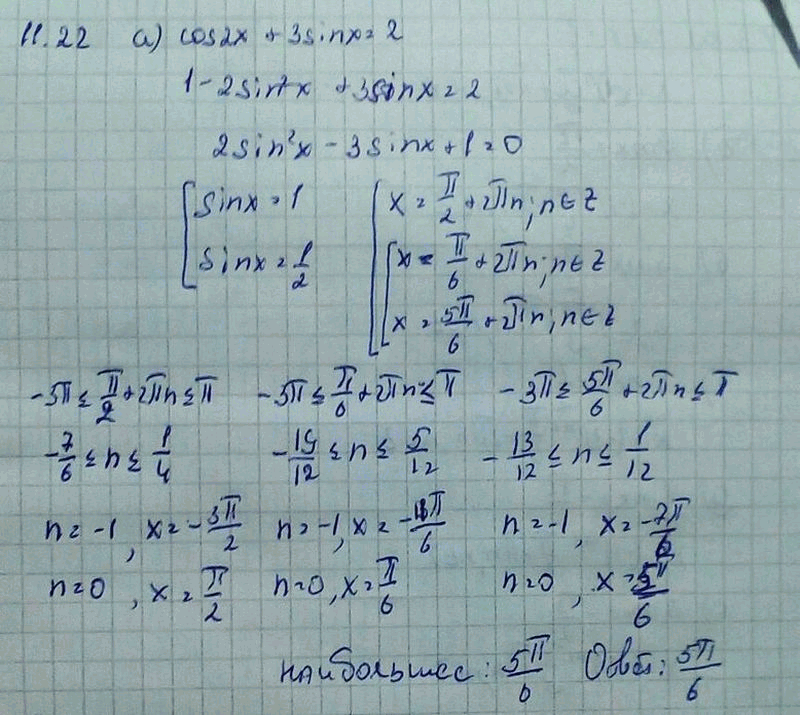 11.22 а) cos2x + 3sinx = 2
1 - 2sin²x + 3sinx = 2
2sin²x - 3sinx + 1 = 0
[ sinx = 1 [ x = π/2 + 2πn; n ∈ Z
sinx = 1/2 [ x = π/6 + 2πn; n ∈ Z
x = 5π/6 + 2πn; n ∈ Z
-3π ≤ π/2 + 2πn ≤ π -3π ≤ π/6 + 2πn ≤ π -3π ≤ 5π/6 + 2πn ≤ π
-7/6 ≤ n ≤ 1/4 -19/12 ≤ n ≤ 5/12 -13/12 ≤ n ≤ 1/12
n = -1, x = -3π/2 n = -1, x = -11π/6 n = -1, x = -7π/6
n = 0, x = π/2 n = 0, x = π/6 n = 0, x = 5π/6
наибольшее: 5π/6 Ответ: 5π/6